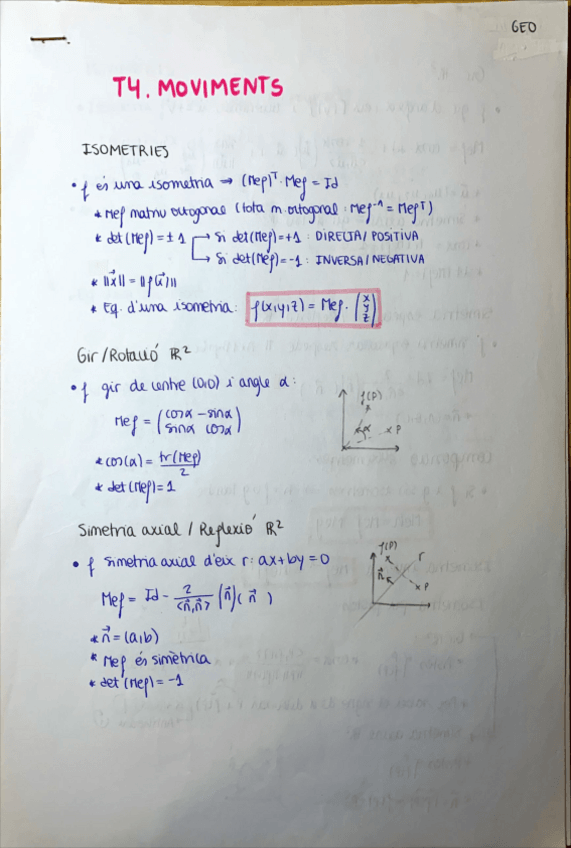 GEO
T4. MOVIMENTS
ISOMETRIES
• f és una isometria → (Mef)ᵀ · Mef = Id
* Mef matriu ortogonal (tota m. ortogonal: Mef⁻¹ = Mefᵀ)
* det(Mef) = ± 1 → Si det(Mef) = +1 : DIRECTA/POSITIVA
→ Si det(Mef) = -1 : INVERSA/NEGATIVA
* ||x⃗|| = ||f(x⃗)||
* Eq. d'una isometria: f(x,y,z) = Mef · (x y z)
Gir/Rotació ℝ²
• f gir de centre (0,0) i angle α:
Mef = (cosα -sinα
sinα cosα)
f(P)
α
P
* cos(α) = tr(Mef)/2
* det(Mef) = 1
Simetria axial / Reflexió ℝ²
• f simetria axial d'eix r: ax+by = 0
f(P)
r
n⃗
P
Mef = Id - 2/<n⃗,n⃗> (n⃗)( n⃗ )
* n⃗ = (a,b)
* Mef és simètrica
* det(Mef) = -1